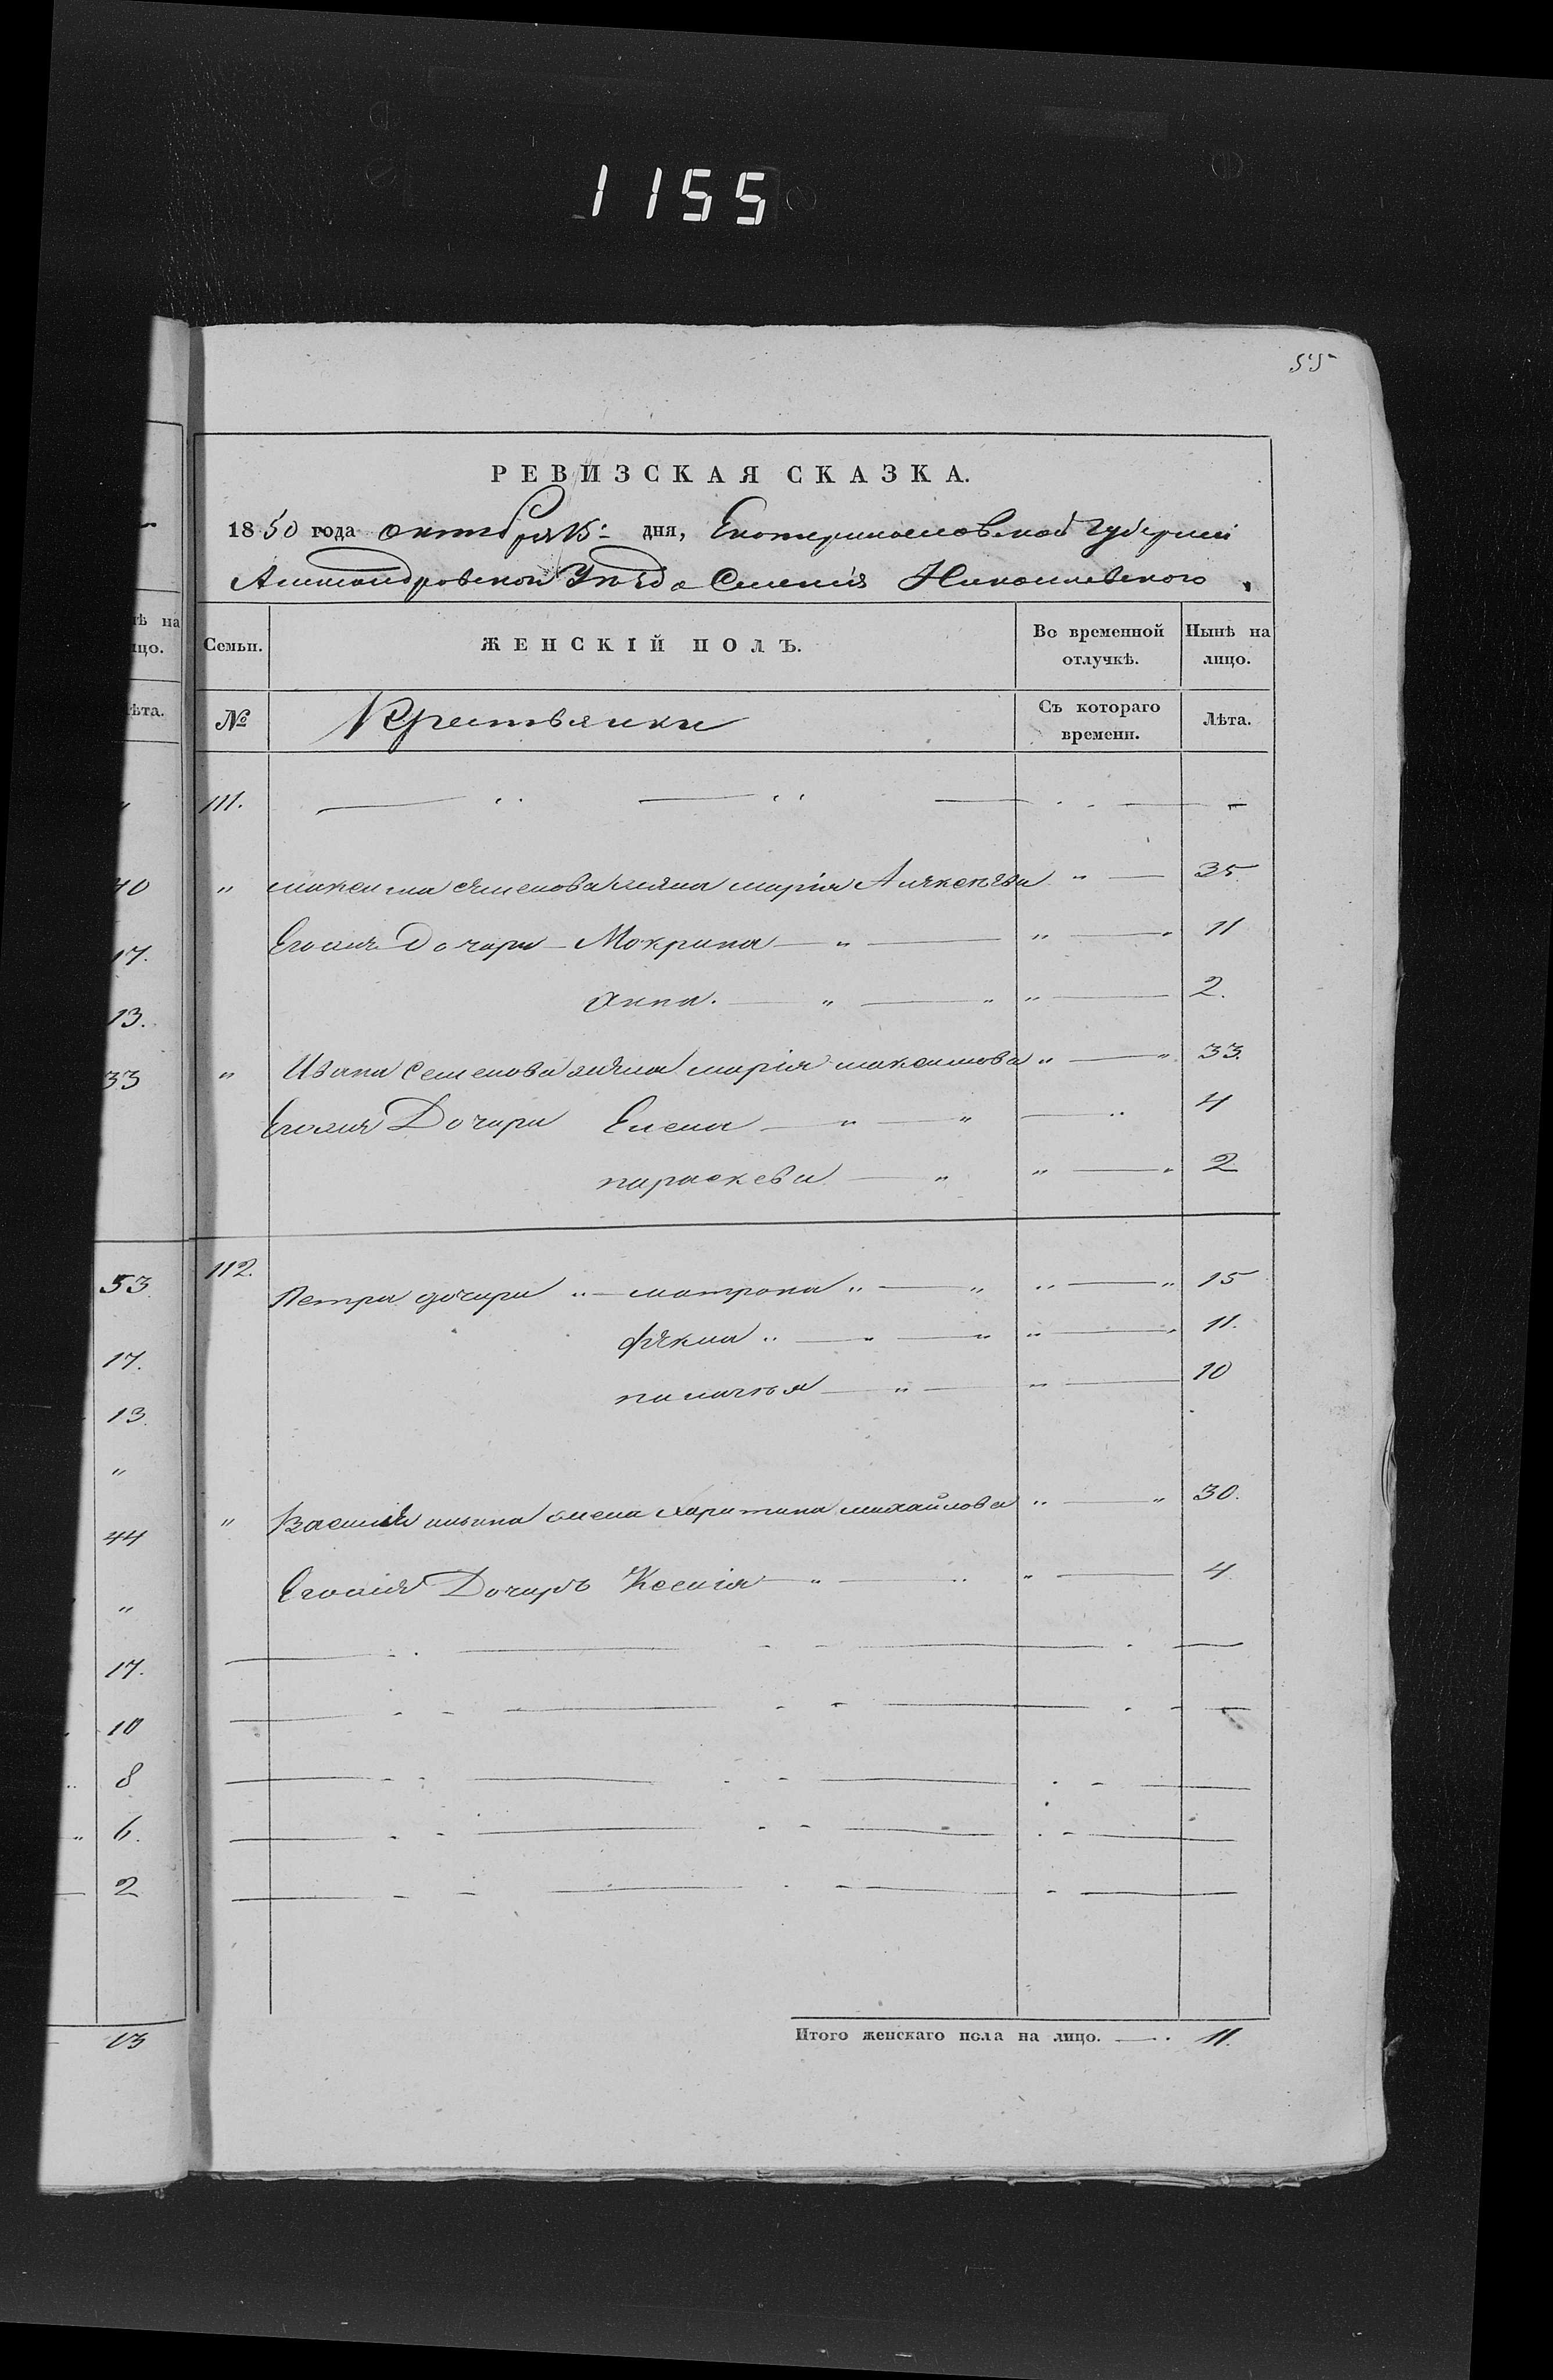 1155
55
РЕВИЗСКАЯ СКАЗКА.
1850 года октября 15: дня, Екотеринословской губернии
Александровскои Уѣзда Селенія Николаевского
Семьи. ЖЕНСКІЙ ПОЛЪ. Во временной отлучкѣ. Нынѣ на лицо.
№ Крестьянки Съ котораго времени. Лѣта.
111.
" максима семенова жена марія Алексѣева " — 35
Егожъ Дочери — Мокрина — " — " — " 11
Анна. — " — " " — 2.
" Ивана Семенова жена марія максимова " — " 33.
Егожъ Дочери Елена — " — " — " 4
параскева — " " — " 2
112. Петра дочери " — матрона " — " " — " 15
фекла " — " — " " — " 11.
палагѣя — " — " — 10
" Василія ильина жена Харитина михайлова " — " 30.
Егожъ Дочерь Ксенія — " — " " — 4
Итого женскаго пола на лицо. — . 11.
тѣ на
ицо.
ѣта.
40
17.
13.
33
53
17.
13.
"
44
"
17.
10
8
6.
2
13